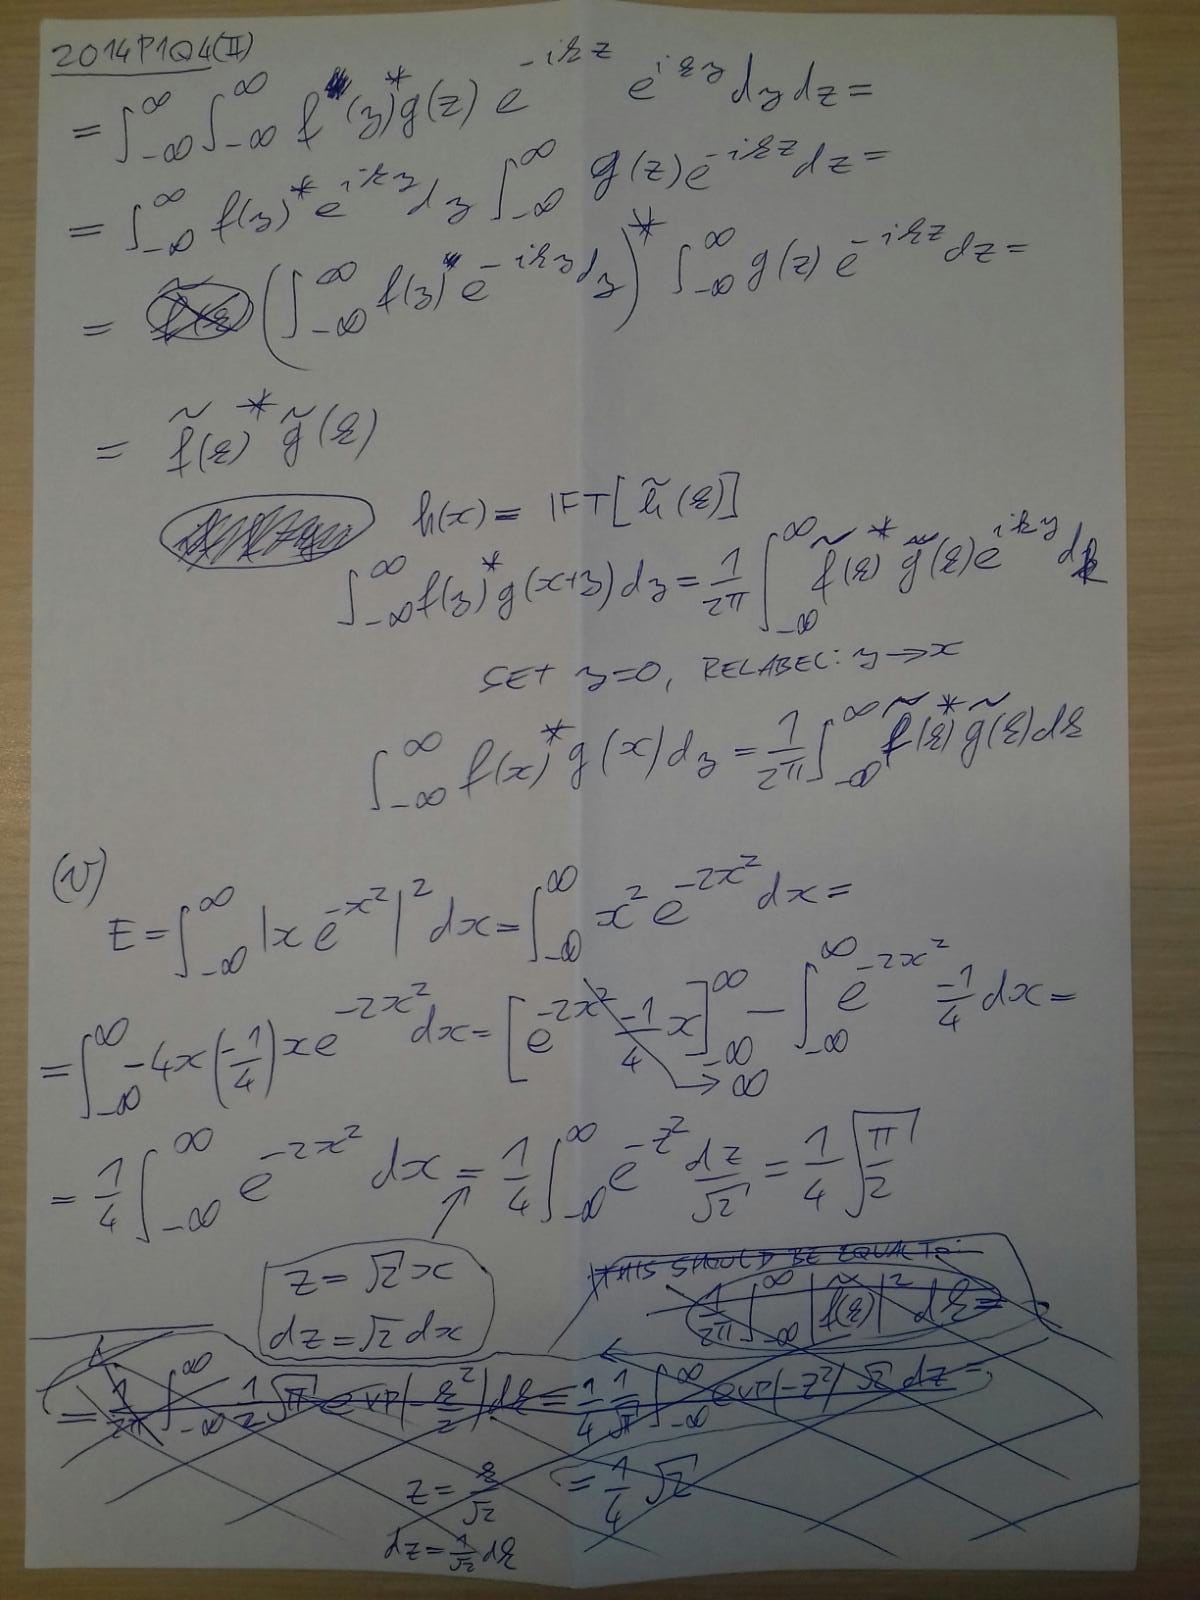 2014P1Q4(II)
= ∫_{-∞}^{∞} ∫_{-∞}^{∞} f(y)* g(z) e^{-ikz} e^{iky} dy dz =
= ∫_{-∞}^{∞} f(y)* e^{iky} dy ∫_{-∞}^{∞} g(z) e^{-ikz} dz =
= (∫_{-∞}^{∞} f(y) e^{-iky} dy)* ∫_{-∞}^{∞} g(z) e^{-ikz} dz =
= f̃(k)* g̃(k)
h(x) = IFT[h̃(k)]
∫_{-∞}^{∞} f(y)* g(x+y) dy = 1/2π ∫_{-∞}^{∞} f̃(k)* g̃(k) e^{iky} dk
SET y=0, RELABEL: y → x
∫_{-∞}^{∞} f(x)* g(x) dy = 1/2π ∫_{-∞}^{∞} f̃(k)* g̃(k) dk
(V)
E = ∫_{-∞}^{∞} |x e^{-x²}|² dx = ∫_{-∞}^{∞} x² e^{-2x²} dx =
= ∫_{-∞}^{∞} -4x(-1/4) x e^{-2x²} dx = [e^{-2x²} -1/4 x]_{-∞}^{∞} - ∫_{-∞}^{∞} e^{-2x²} -1/4 dx =
→ ∞
= 1/4 ∫_{-∞}^{∞} e^{-2x²} dx = 1/4 ∫_{-∞}^{∞} e^{-z²} dz/√2 = 1/4 √(π/2)
z = √2 x
dz = √2 dx
THIS SHOULD BE EQUAL TO:
1/2π ∫_{-∞}^{∞} |f̃(k)|² dk =
= 1/2π ∫_{-∞}^{∞} 1/2 √π exp(-k²/2) dk = 1/4 1/√π ∫_{-∞}^{∞} exp(-z²) √2 dz =
z = k/√2
= 1/4 √2
dz = 1/√2 dk